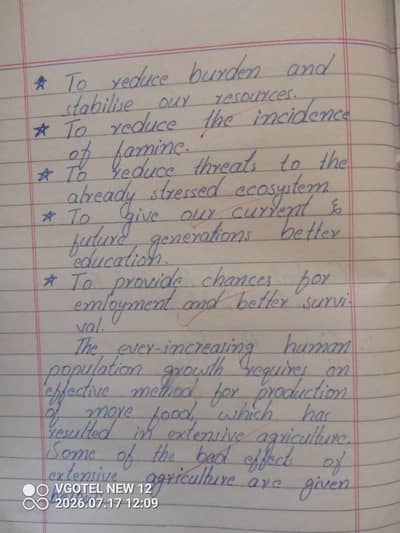 * To reduce burden and
stabilise our resources.
* To reduce the incidence
of famine.
* To reduce threats to the
already stressed ecosystem
* To give our current &
future generations better
education.
* To provide chances for
emloyment and better survi-
val.
The ever-increasing human
population growth requires an
effective method for production
of more food, which has
resulted in extensive agriculture.
Some of the bad effects of
extensive agriculture are given
VGOTEL NEW 12
2026.07.17 12:09